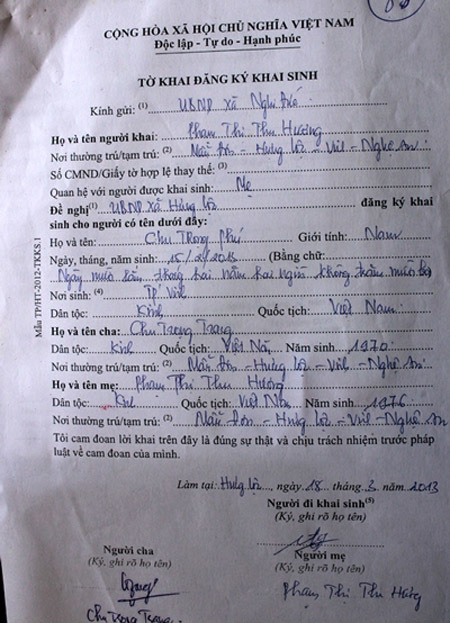 CỘNG HÒA XÃ HỘI CHỦ NGHĨA VIỆT NAM
Độc lập - Tự do - Hạnh phúc
TỜ KHAI ĐĂNG KÝ KHAI SINH
Kính gửi: (1) UBND xã Nghi
Họ và tên người khai: Phạm Thị Thu Hương
Nơi thường trú/tạm trú: (2) Mẫu Đơn - Hưng Lộc - Vinh - Nghệ An
Số CMND/Giấy tờ hợp lệ thay thế: (3)
Quan hệ với người được khai sinh: Mẹ
Đề nghị(1) UBND xã Hưng Lộc đăng ký khai
sinh cho người có tên dưới đây:
Họ và tên: Chu Trọng Phú Giới tính: Nam
Ngày, tháng, năm sinh: 15/2/2013 (Bằng chữ:
Ngày mười lăm tháng hai năm hai nghìn không trăm mười ba
Nơi sinh: (4) TP Vinh
Dân tộc: Kinh Quốc tịch: Việt Nam
Họ và tên cha: Chu Trọng Trang
Dân tộc: Kinh Quốc tịch: Việt Nam Năm sinh 1970
Nơi thường trú/tạm trú: (2) Mẫu Đơn - Hưng Lộc - Vinh - Nghệ An
Họ và tên mẹ: Phạm Thị Thu Hương
Dân tộc: Kinh Quốc tịch: Việt Nam Năm sinh 1976
Nơi thường trú/tạm trú: (2) Mẫu Đơn - Hưng Lộc - Vinh - Nghệ An
Tôi cam đoan lời khai trên đây là đúng sự thật và chịu trách nhiệm trước pháp
luật về cam đoan của mình.
Làm tại: Hưng Lộc, ngày 18 tháng 3 năm 2013
Người đi khai sinh(5)
(Ký, ghi rõ họ tên)
Người cha
(Ký, ghi rõ họ tên)
Chu Trọng Trang
Người mẹ
(Ký, ghi rõ họ tên)
Phạm Thị Thu Hương
Mẫu TP/HT-2012-TKKS.1